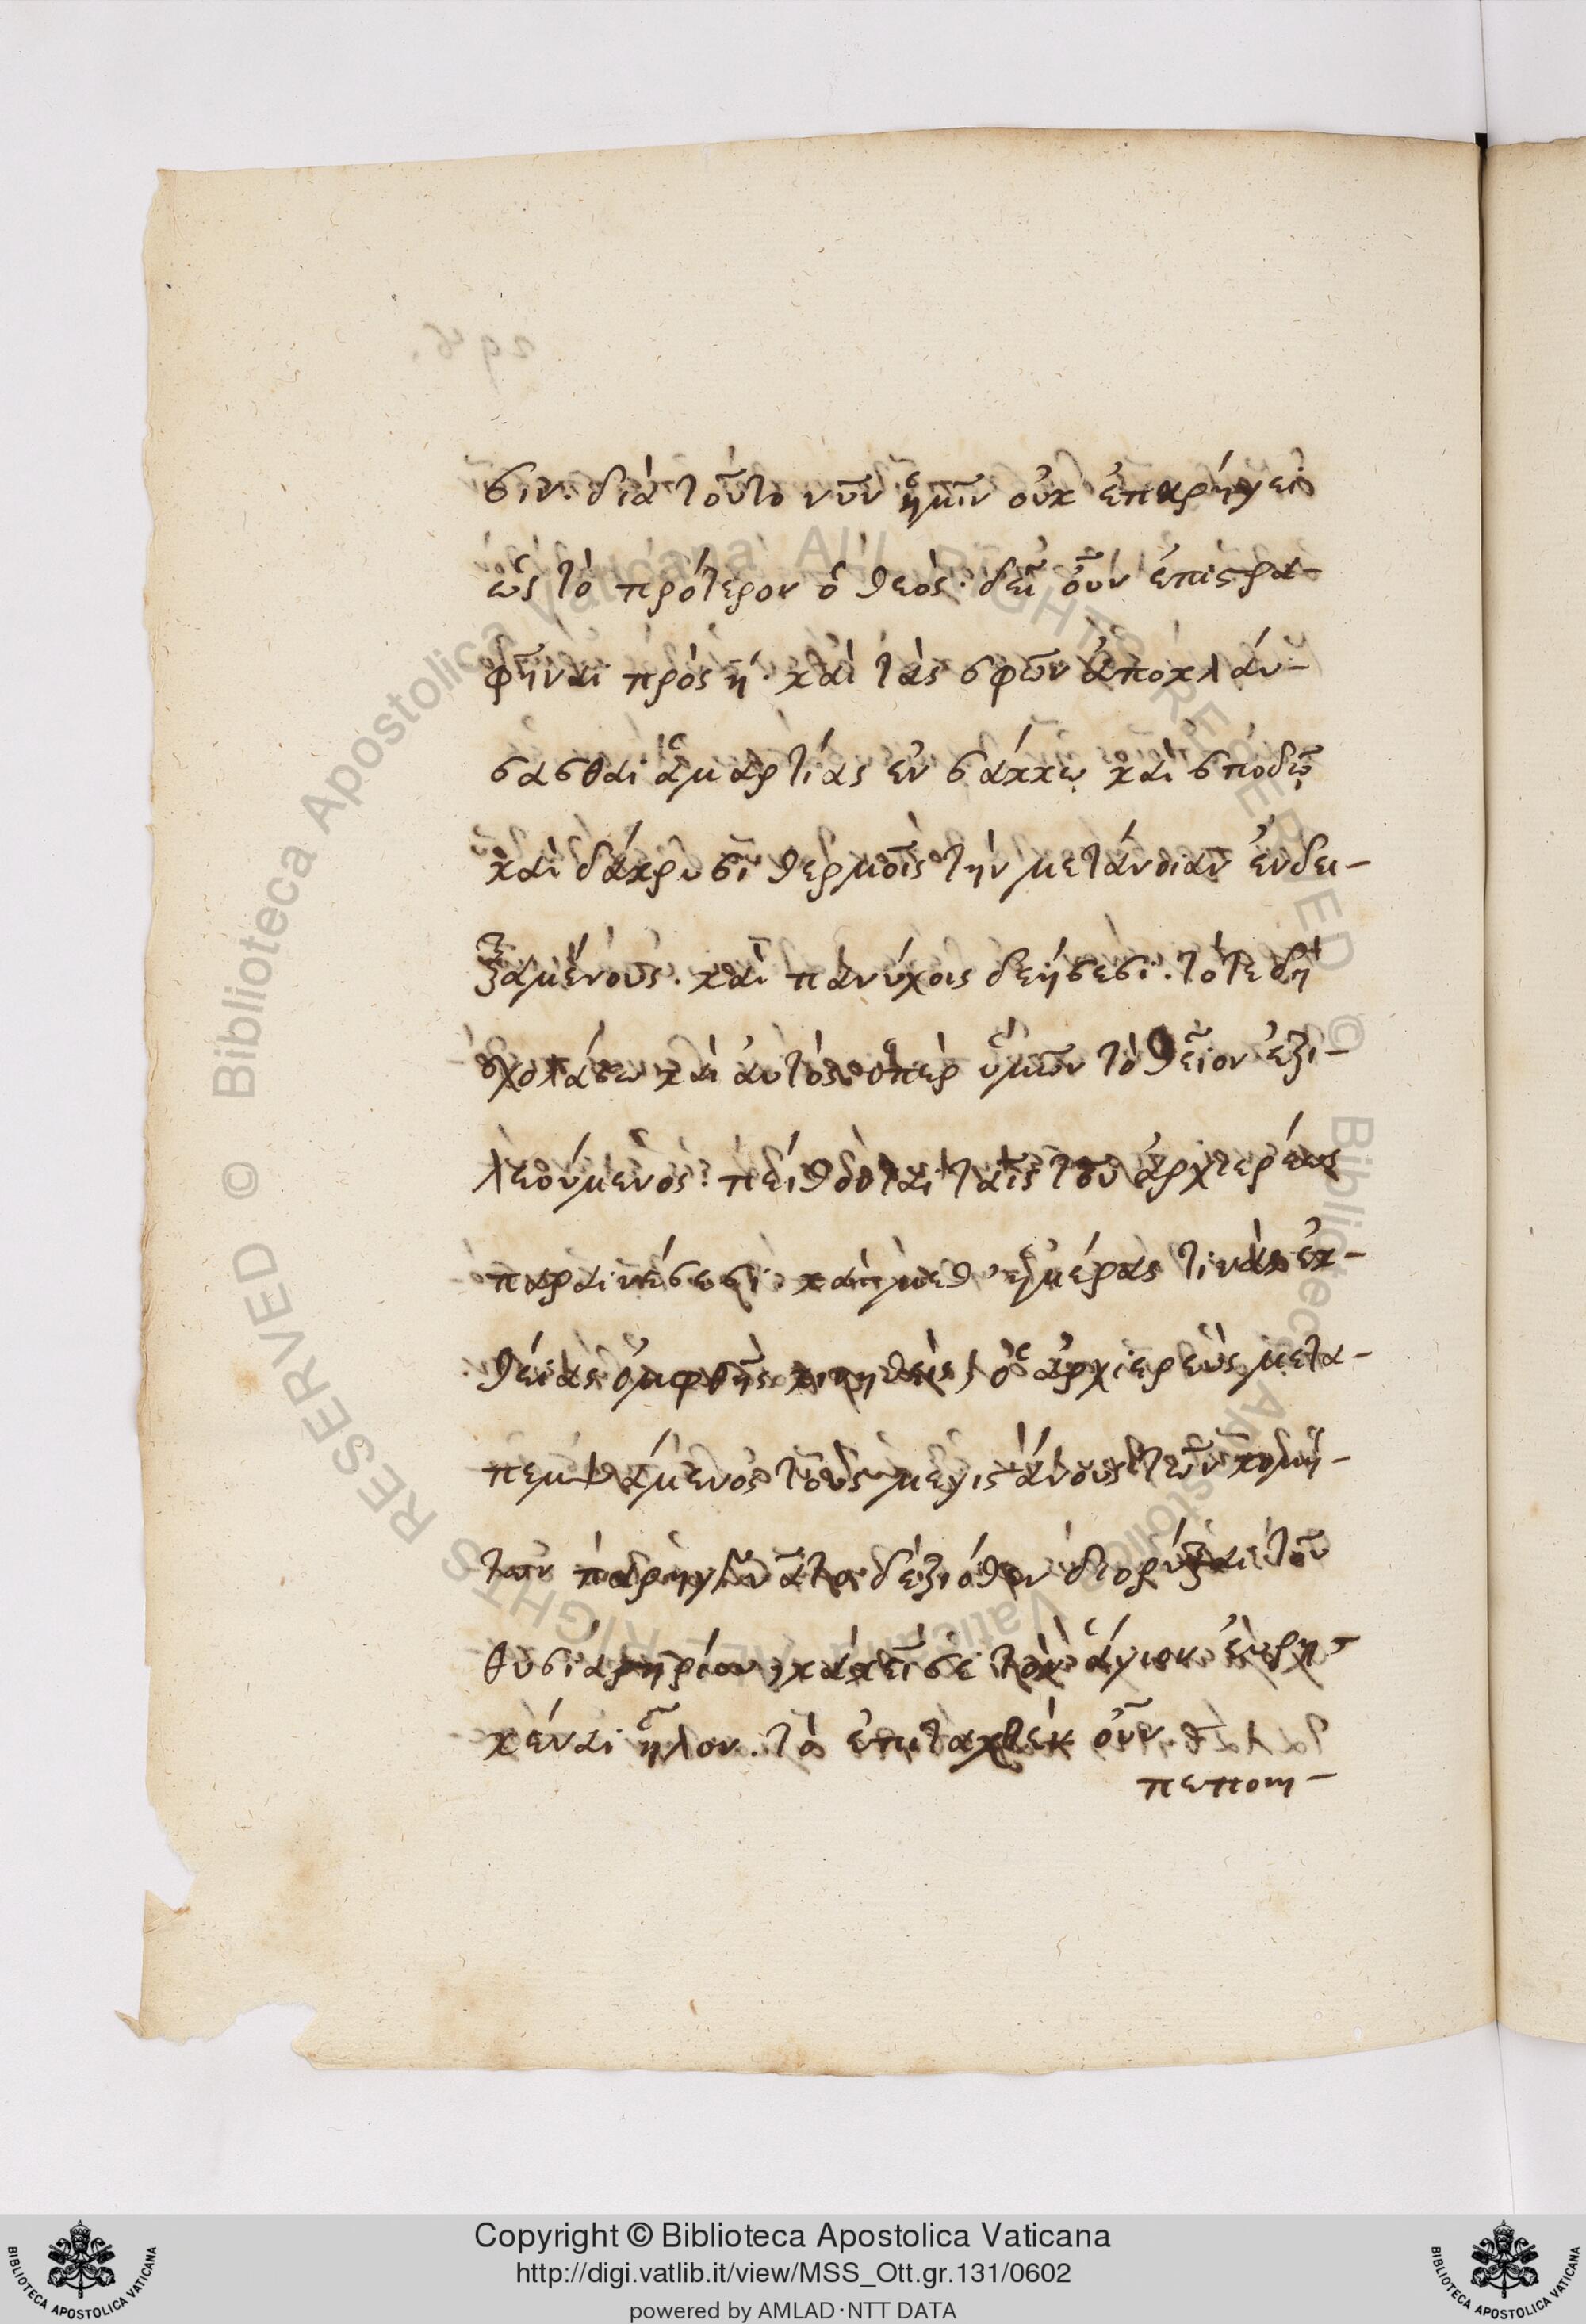 σιν. διὰ τοῦτο νῦν ἡμῖν οὐκ ἐπαρήγει
ὡς τὸ πρότερον ὁ θεός. δεῖ οὖν ἐπιστρα-
φῆναι πρὸς ἥ· καὶ τὰς σφῶν ἀποκλαύ-
σασθαι ἁμαρτίας ἐν σάκκῳ καὶ σποδῷ
καὶ δάκρυσι θερμοῖς τὴν μετάνοιαν ἐνδει-
ξαμένους. καὶ πανύχοις δεήσεσι. τότε δὴ
σχολάσω καὶ αὐτὸς ὑπὲρ ὑμῶν τὸ θεῖον ἐξι-
λεούμενος. πείθονται ταῖς τοῦ ἀρχιερέως
παραινέσεσι. καὶ μεθ' ἡμέρας τινὰς ἐκ
θείας ὀμφῆς κινηθεὶς ὁ ἀρχιερεὺς μετα-
πεμψάμενος τοὺς μεγιστάνους τῶν
δεξιόθεν διορύξαι τοῦ
θυσιαστηρίου, κἀκεῖσε τὸν ἅγιον εὑρη-
κέναι ἧλον. τὸ ἐπιταχθὲν οὖν
πεποιη-
Copyright © Biblioteca Apostolica Vaticana
http://digi.vatlib.it/view/MSS_Ott.gr.131/0602
powered by AMLAD·NTT DATA
BIBLIOTECA APOSTOLICA VATICANA
BIBLIOTECA APOSTOLICA VATICANA